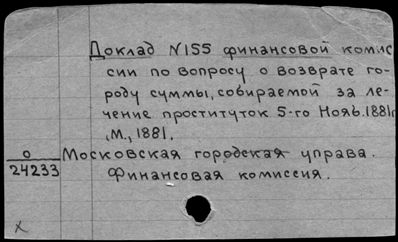 Доклад №155 финансовой комис
сии по вопросу о возврате го-
роду суммы, собираемой за ле-
чение проституток 5-го Нояб. 1881г
,М., 1881.
0 Московская городская управа.
24233 Финансовая комиссия.
x